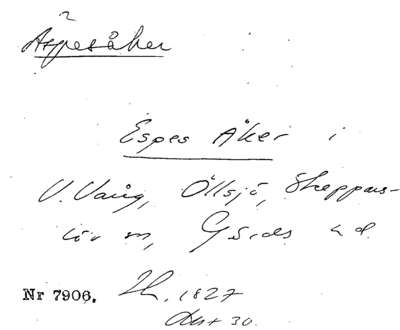 ?
Äspesåker
Espes Åker i
V. Vång, Öllsjö, Skeppars-
löv sn, Gärds hd
Nr 7906. 1827
30.